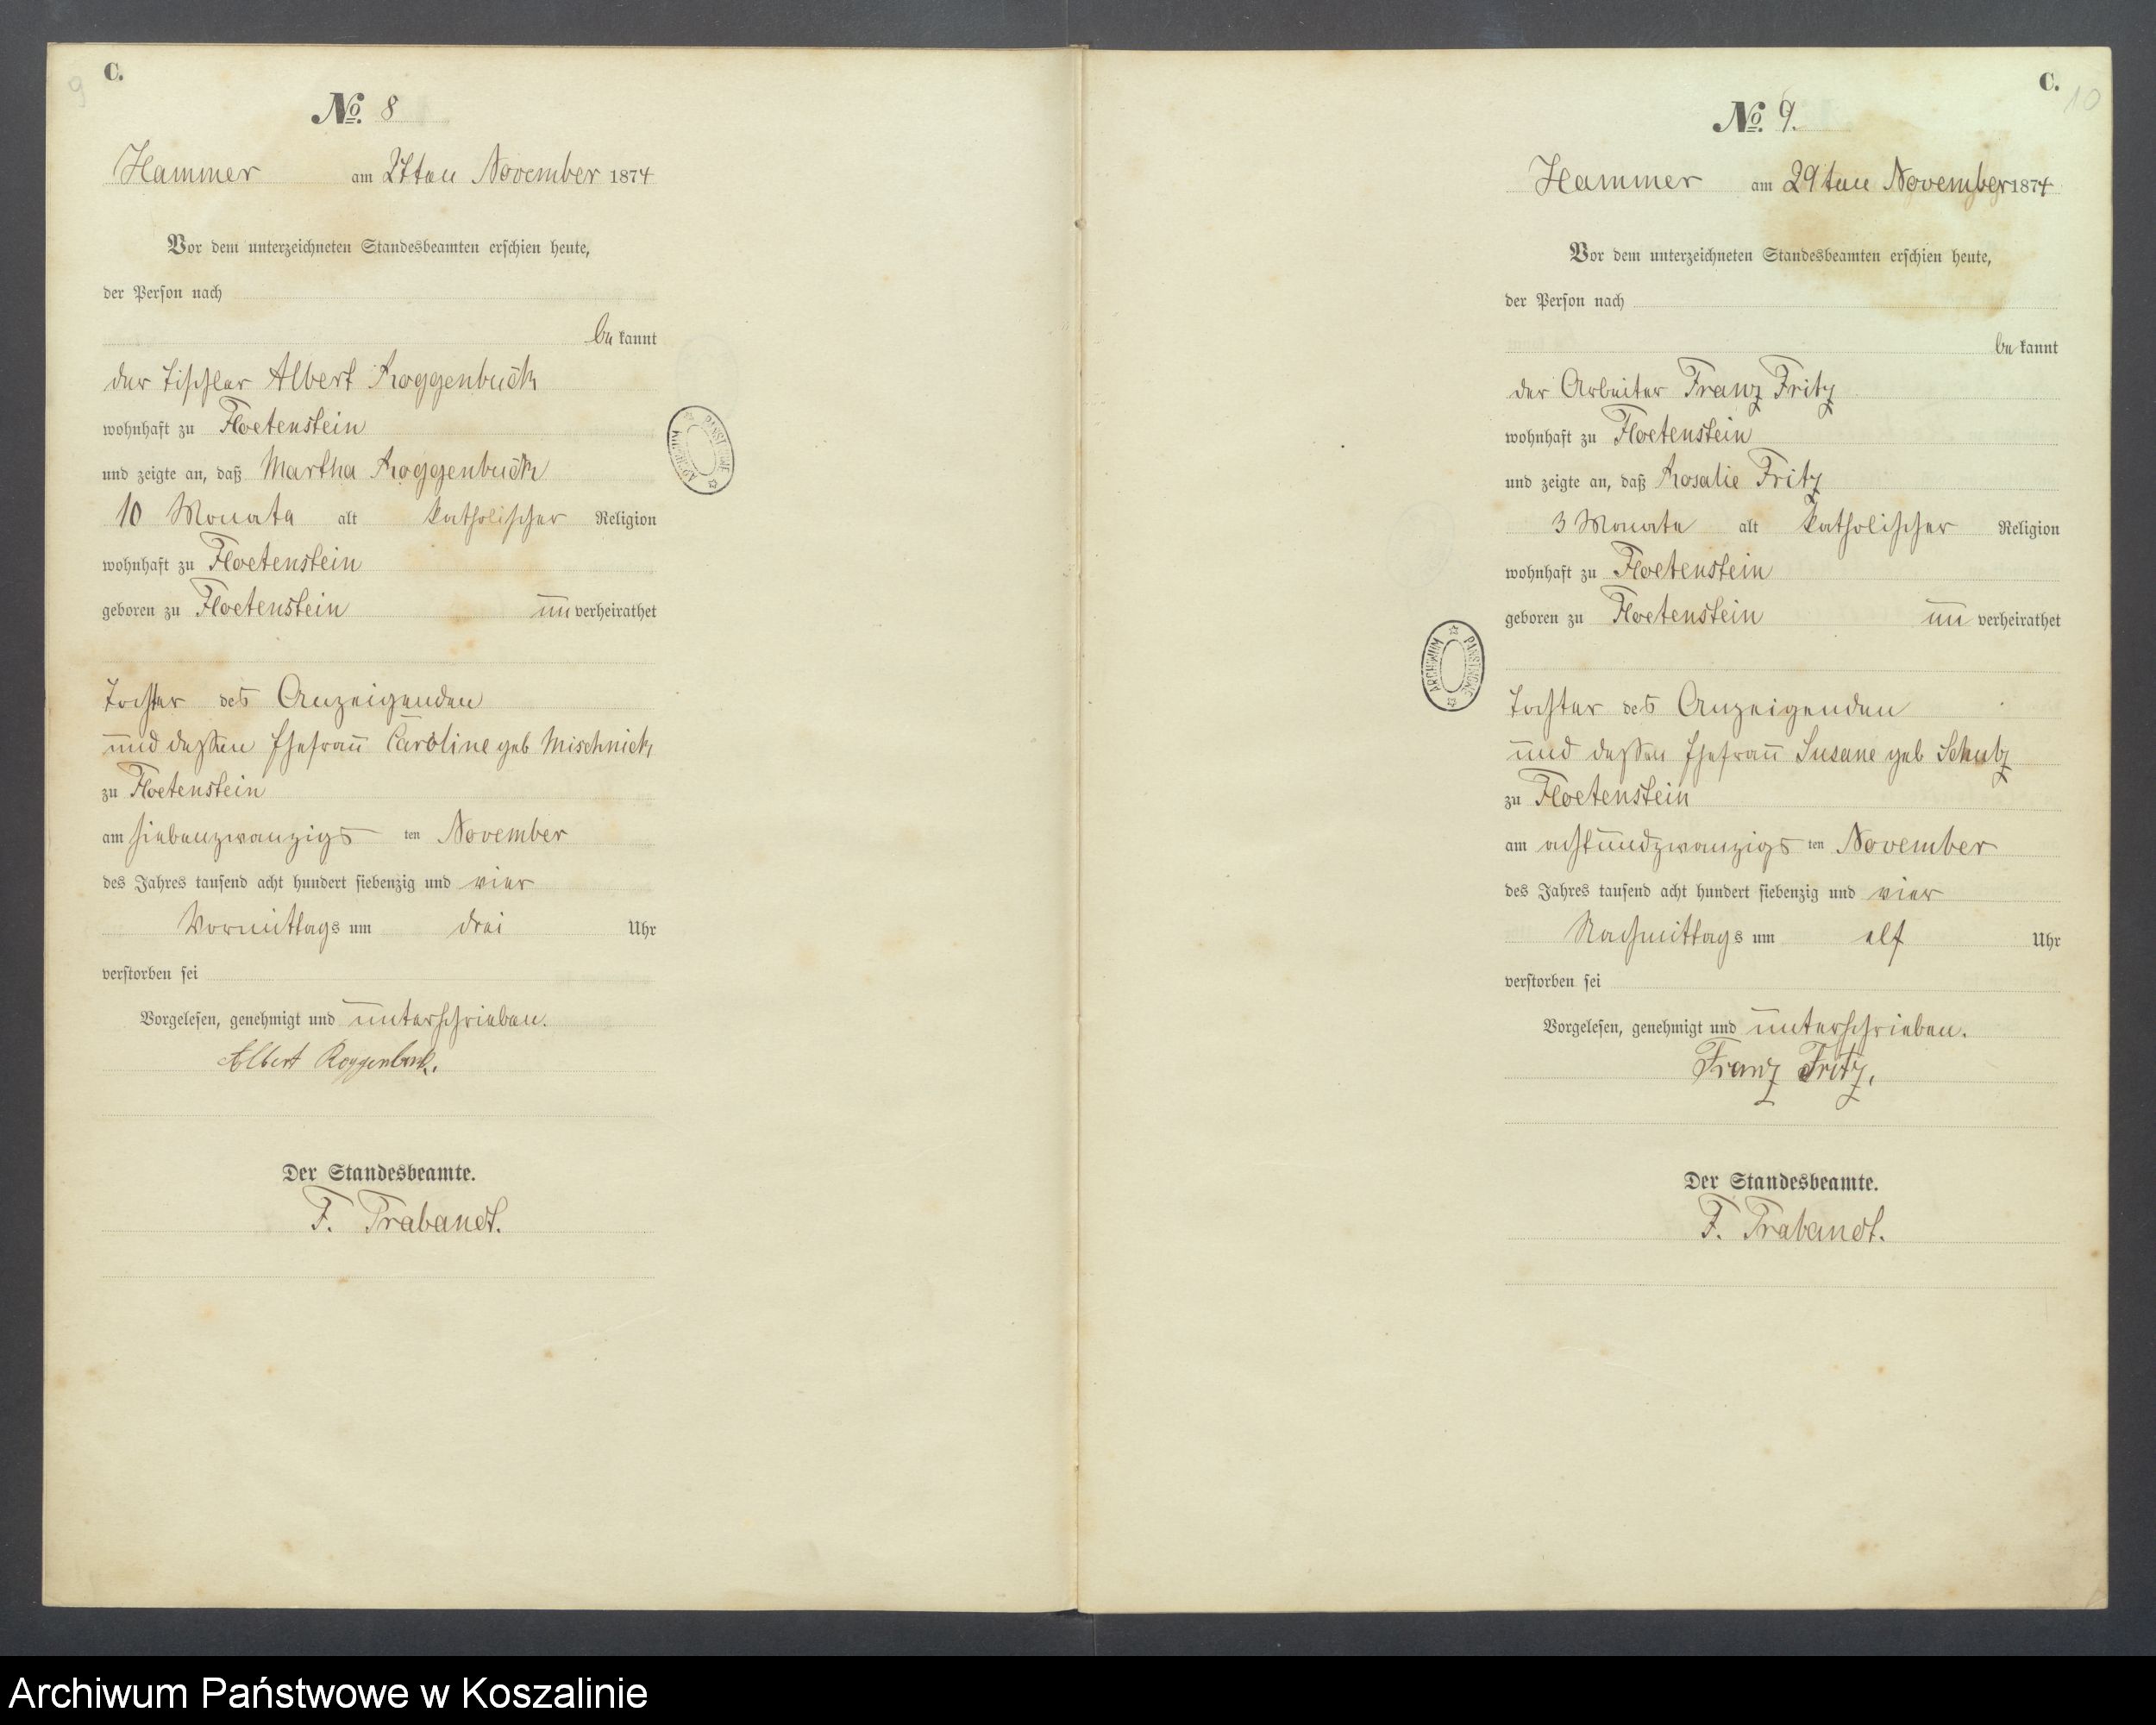 9
C.
No. 8
Hammer am 27ten November 1874
Vor dem unterzeichneten Standesbeamten erschien heute,
der Person nach
be kannt
der Tischler Albert Roggenbuck
wohnhaft zu Floetenstein
und zeigte an, daß Martha Roggenbuck
10 Monate alt katholischer Religion
wohnhaft zu Floetenstein
geboren zu Floetenstein un verheirathet
Tochter des Anzeigenden
und dessen Ehefrau Caroline geb Mischnick
zu Floetenstein
am siebenzwanzigs ten November
des Jahres tausend acht hundert siebenzig und vier
Vormittags um drei Uhr
verstorben sei
Vorgelesen, genehmigt und unterschrieben.
Albert Roggenbuck.
Der Standesbeamte.
F. Trabandt.
ARCHIWUM PAŃSTWOWE
C.
10
No. 9.
Hammer am 29ten November 1874
Vor dem unterzeichneten Standesbeamten erschien heute,
der Person nach
be kannt
der Arbeiter Franz Fritz
wohnhaft zu Floetenstein
und zeigte an, daß Rosalie Fritz
3 Monate alt katholischer Religion
wohnhaft zu Floetenstein
geboren zu Floetenstein un verheirathet
Tochter des Anzeigenden
und dessen Ehefrau Susane geb Schutz
zu Floetenstein
am achtundzwanzigs ten November
des Jahres tausend acht hundert siebenzig und vier
Nachmittags um elf Uhr
verstorben sei
Vorgelesen, genehmigt und unterschrieben.
Franz Fritz.
Der Standesbeamte.
F. Trabandt.
ARCHIWUM PAŃSTWOWE
Archiwum Państwowe w Koszalinie